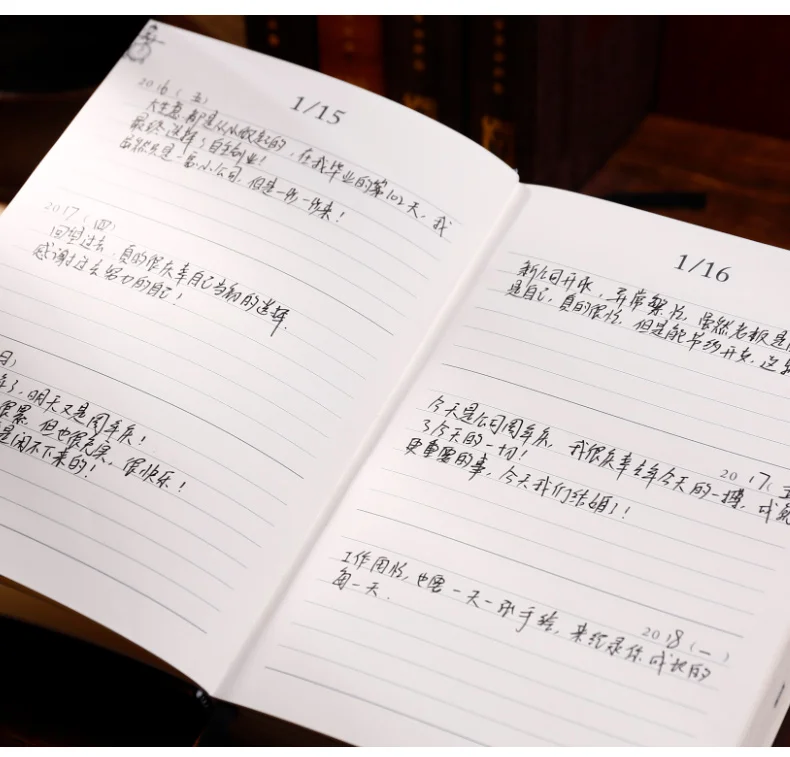 1/15
2016(五)
大生意都是从小做起的,在我毕业的第102天,我
最终选择了自主创业!
虽然只是一家小公司,但是一步一步来!
2017(四)
回望过去,真的很庆幸自己当初的选择.
感谢过去努力的自己!
日)
年了,明天又是周年庆!
很累,但也很充实,很快乐!
是闲不下来的!
1/16
新公司开张,异常繁忙,虽然老板是
是自己,真的很忙,但是能节约开支,
2017(五
今天是公司周年庆,我很庆幸去年今天的一搏,成就
了今天的一切!
更重要的事,今天我们结婚了!
2018(一)
工作再忙,也要一天一张手绘,来纪录你成长的
每一天.